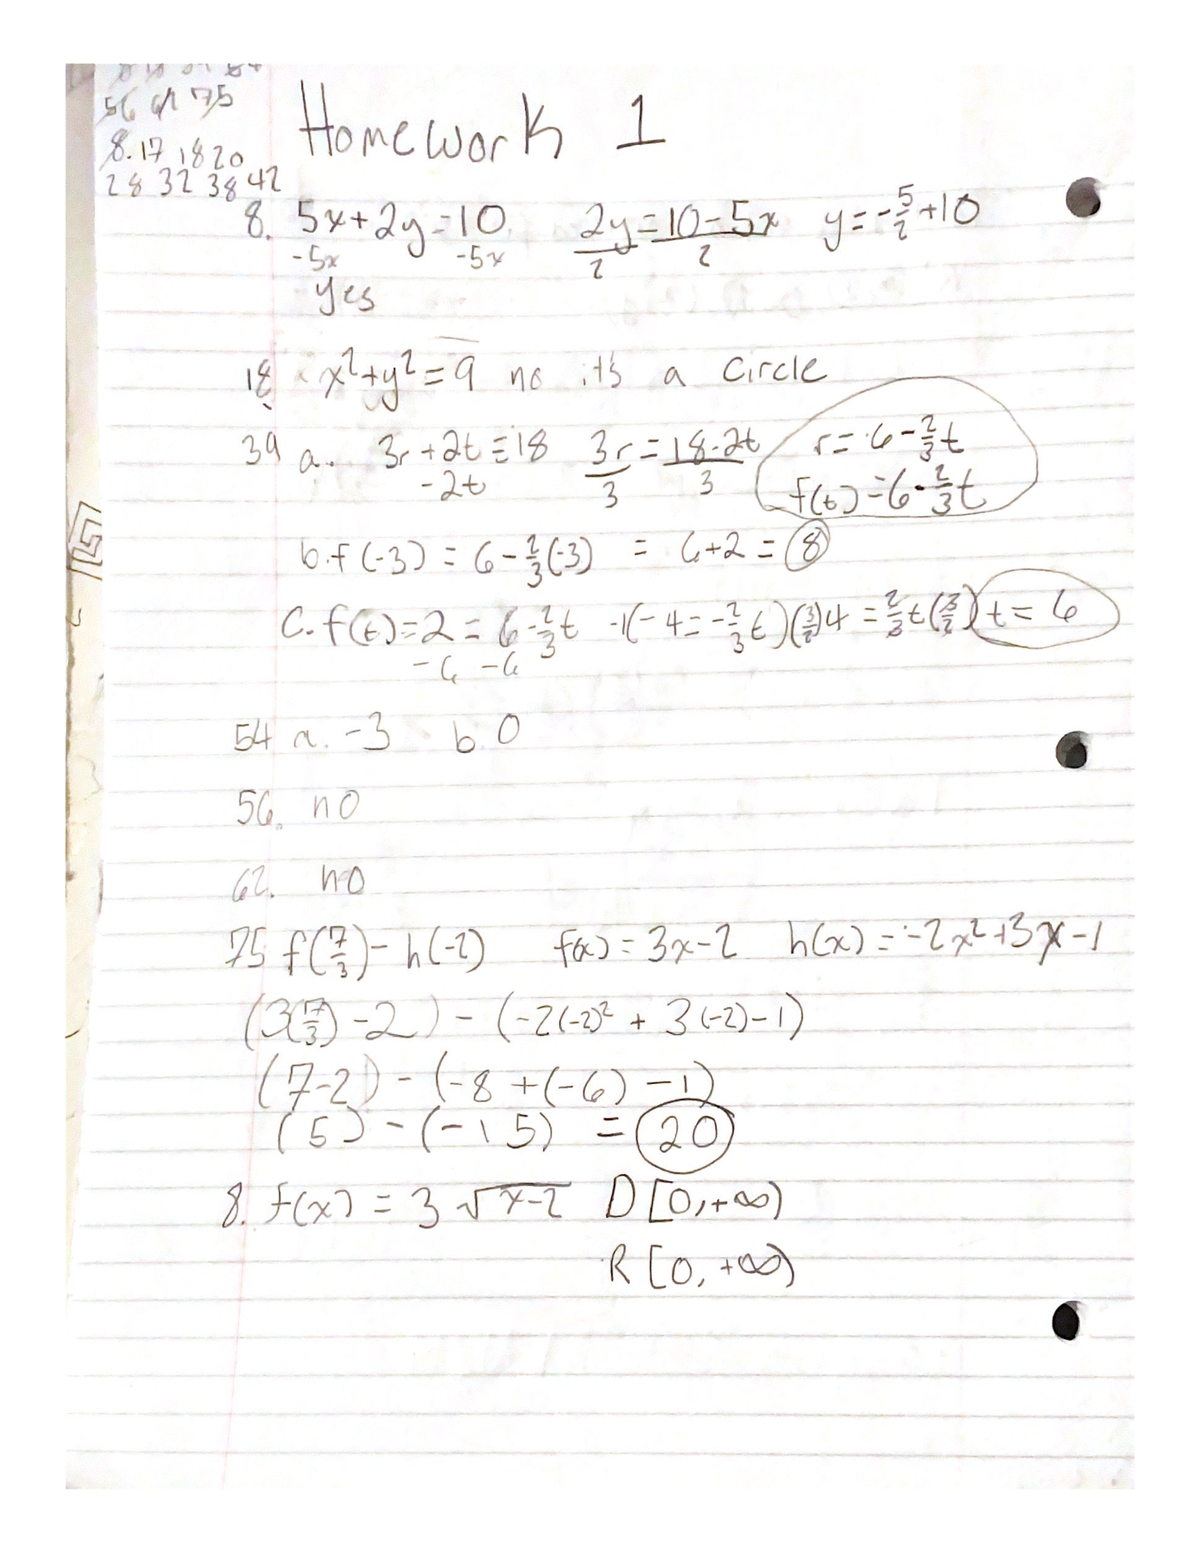 56 61 75
8. 17 18 20
28 32 38 42
Homework 1
8. 5x+2y=10 2y=10-5x y=-5/2+10
-5x -5x 2 2
yes
18 x²+y²=9 no it's a circle
39 a. 3r+2t=18 3r=18-2t r=6-2/3t
-2t 3 3 f(t)=6-2/3t
b. f(-3) = 6-2/3(-3) = 6+2 = 8
C. f(t)=2=6-2/3t -1(-4=-2/3t)(3/2)4=2/3t(3/2) t=6
-6 -6
54 a. -3 b 0
56. no
62. no
75 f(7/3)-h(-2) f(x)=3x-2 h(x)=-2x²+3x-1
(3(7/3)-2)-(-2(-2)²+3(-2)-1)
(7-2)-(-8+(-6)-1)
(5)-(-15) = 20
8. f(x) = 3√x-2 D[0,+∞)
R[0,+∞)